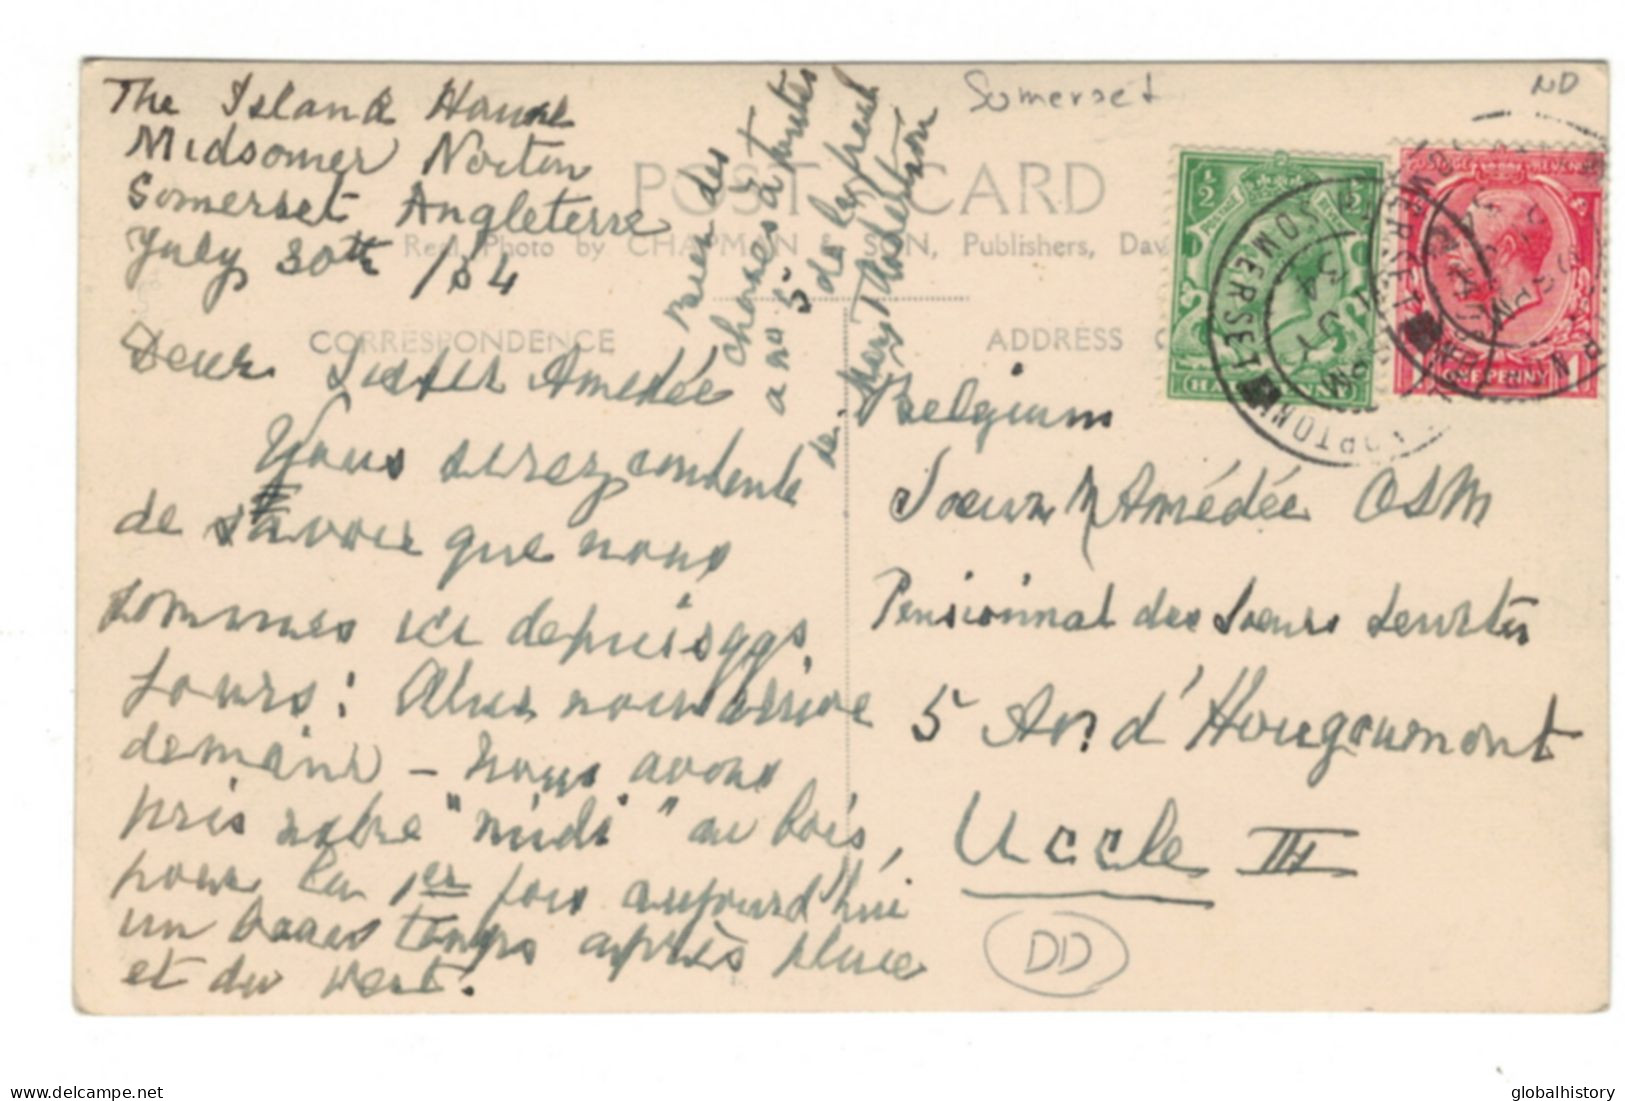 Somerset
ND
The Island House
Midsomer Norton
Somerset Angleterre
July 30th /34
POST CARD
Real Photo by CHAPMAN & SON, Publishers, Daw
CORRESPONDENCE
ADDRESS O
Dear Sister Amedée
Vous serez contente
de savoir que nous
sommes ici depuis qqs
jours: Alice nous arrive
demain – Nous avons
pris notre "midi" au bois,
pour la 1er fois aujourd'hui
un beau temps après pluie
et du vent!
Bien des
choses à toutes
au no 5 de la part
de Mary
Belgium
Soeur M Amédée OSM
Pensionnat des Soeurs Servites
5 Av. d'Hougoumont
Uccle III
DD
1/2 POSTAGE REVENUE 1/2
HALF PENNY
ONE PENNY 1
SOMERSET
SOMERSET
globalhistory